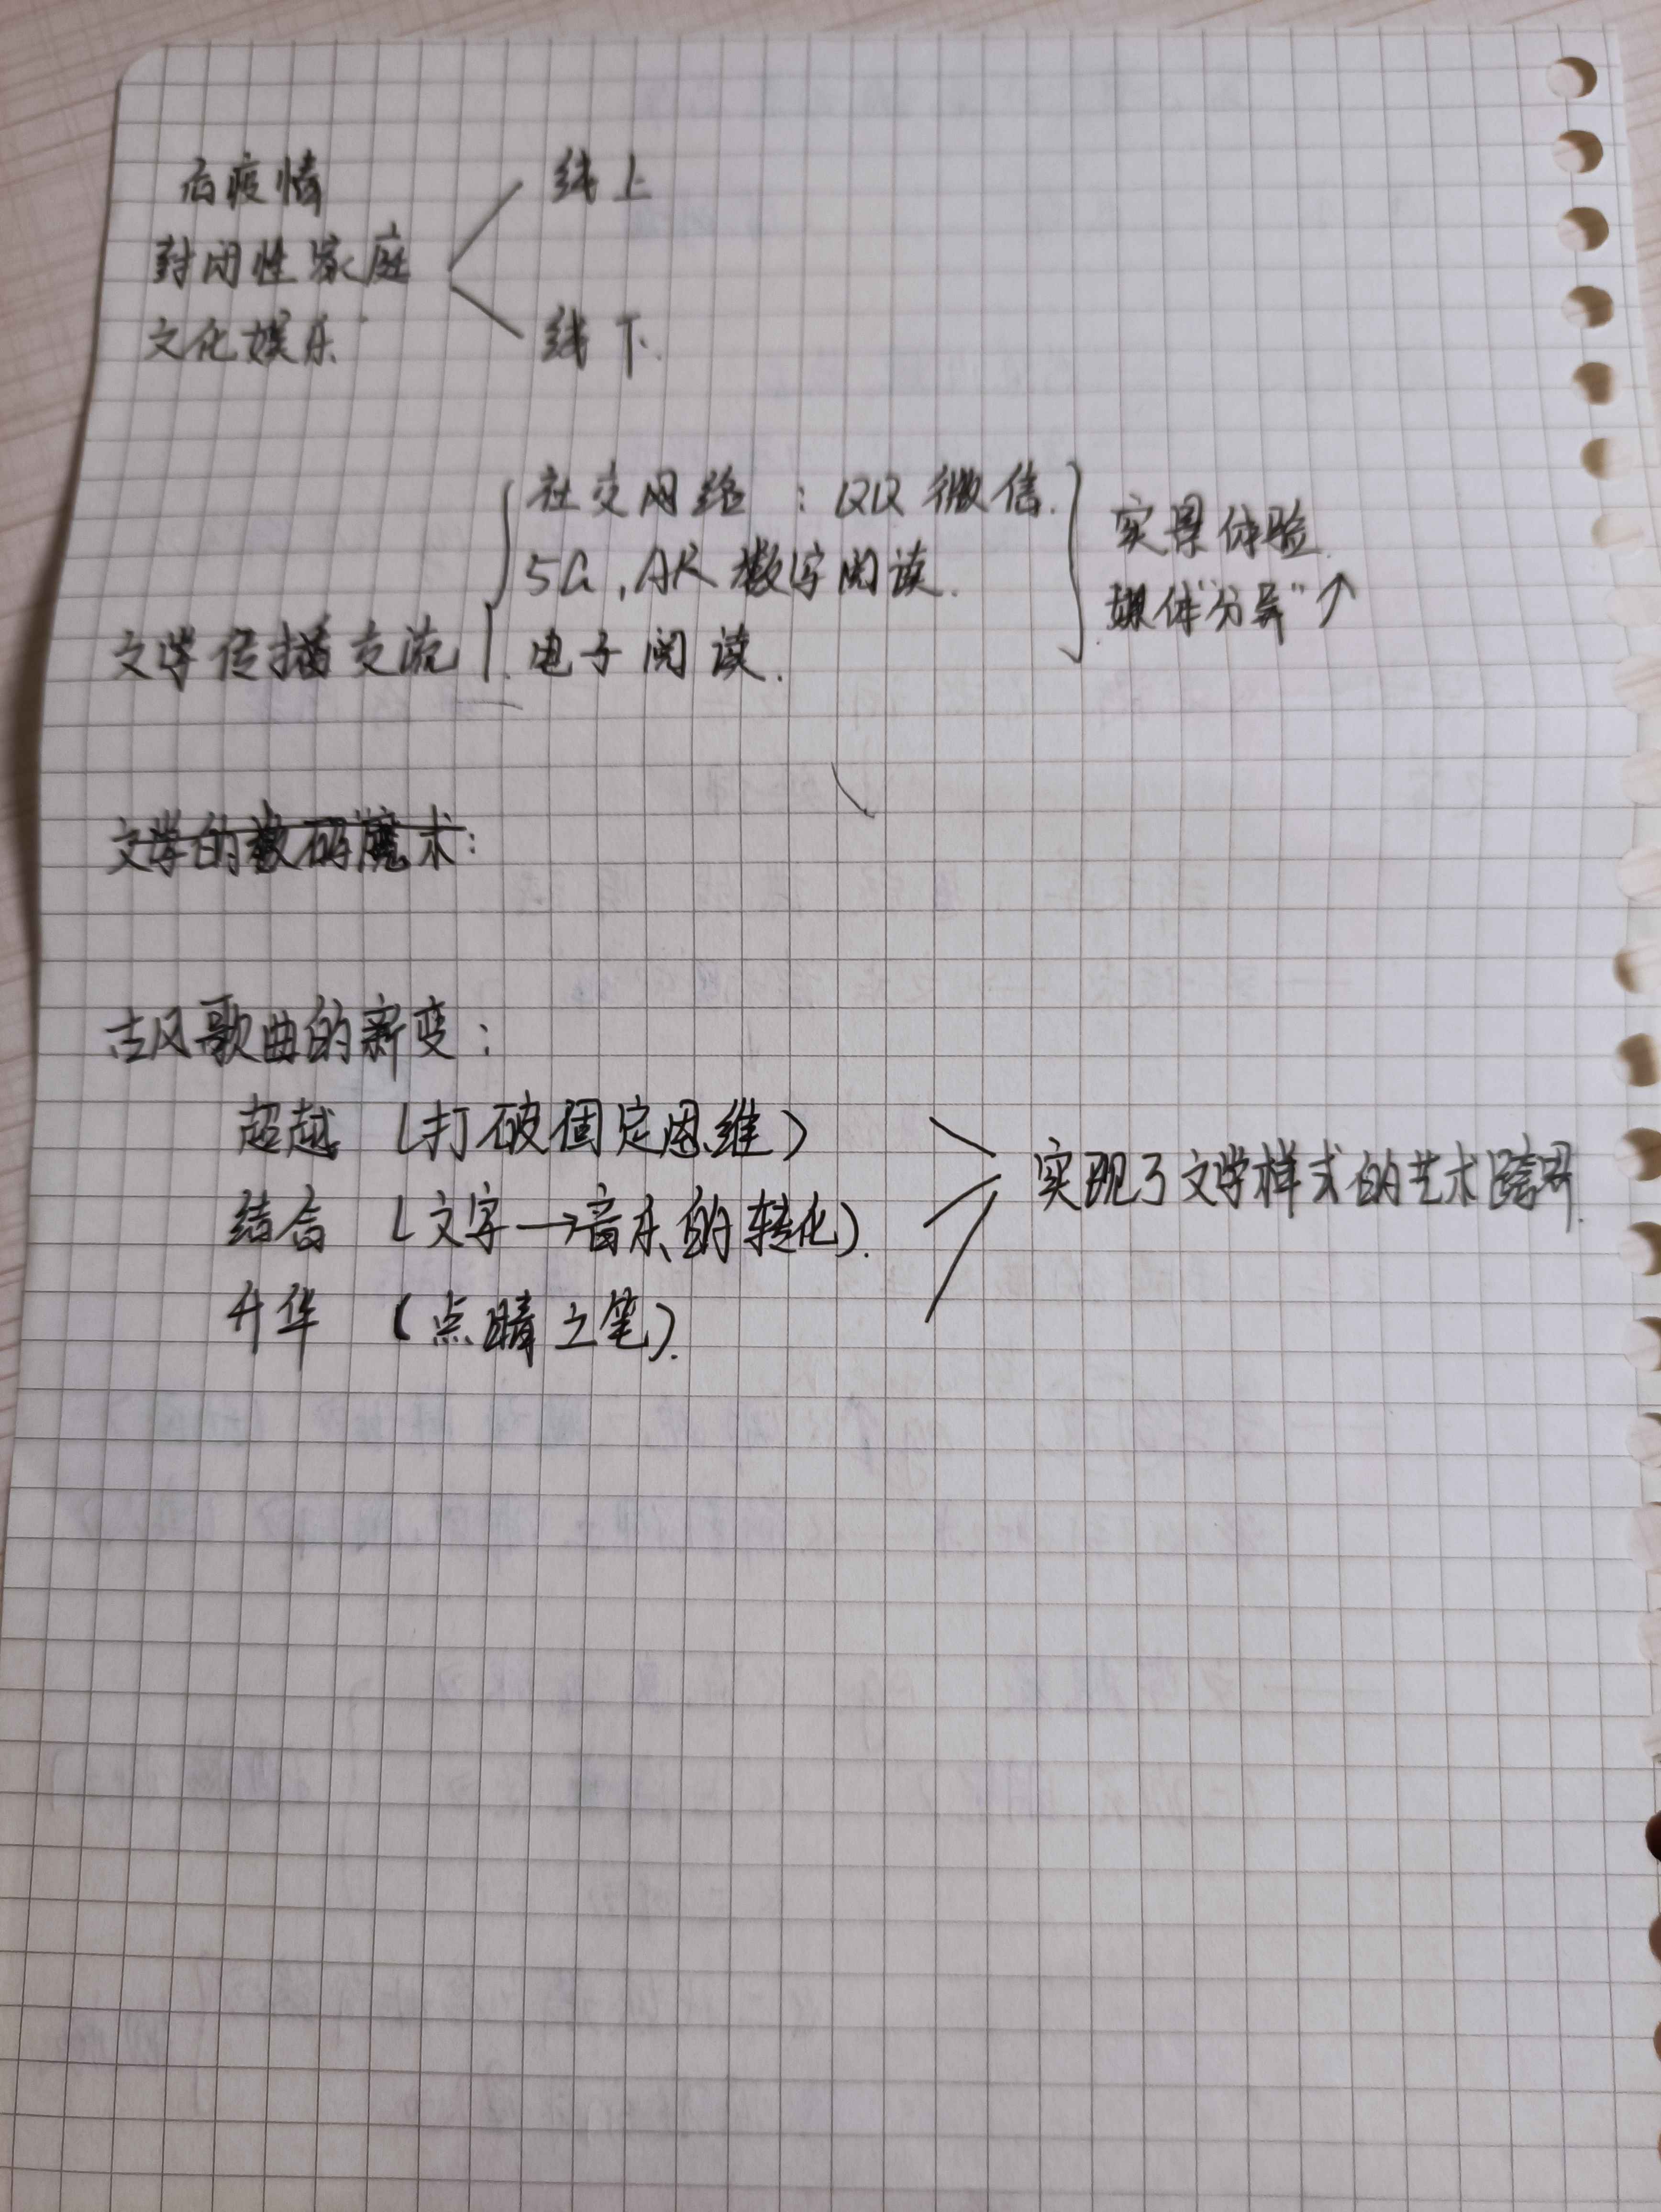 后疫情
封闭性家庭
文化娱乐
线上
线下.
文学传播交流
社交网络：QQ 微信.
5G,AR 数字阅读.
电子阅读.
实景体验.
媒体"分异"↑
文学的数码魔术:
古风歌曲的新变:
超越 (打破固定思维)
结合 (文字→音乐的转化).
升华 (点睛之笔).
实现了文学样式的艺术跨界.